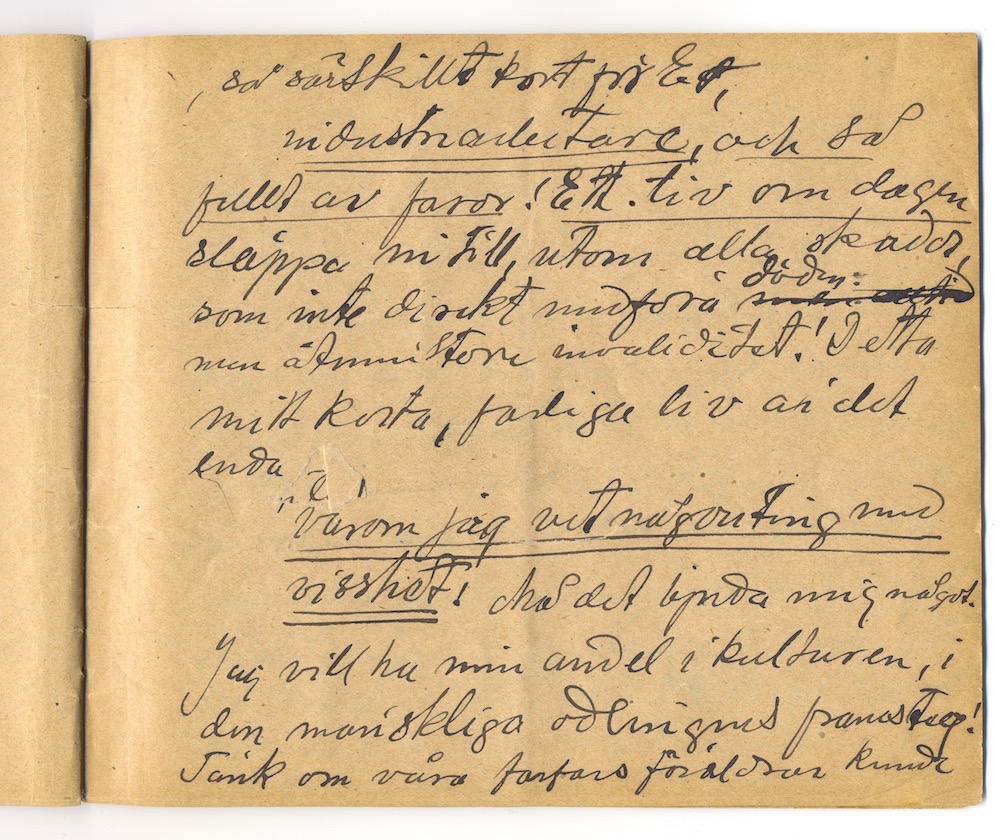 , så särskillt kort för Er,
industriarbetare, och så
fullt av faror! Ett liv om dagen
släppa ni till, utom alla skador,
döden:
som inte direkt medföra
men åtminstone invaliditet! Detta
mitt korta, farliga liv är det
enda
varom jag vet någonting med
visshet! Må det bjuda mig något.
Jag vill ha min andel i kulturen, i
den mänskliga odlingens framsteg!
Tänk om våra farfars föräldrar kunde